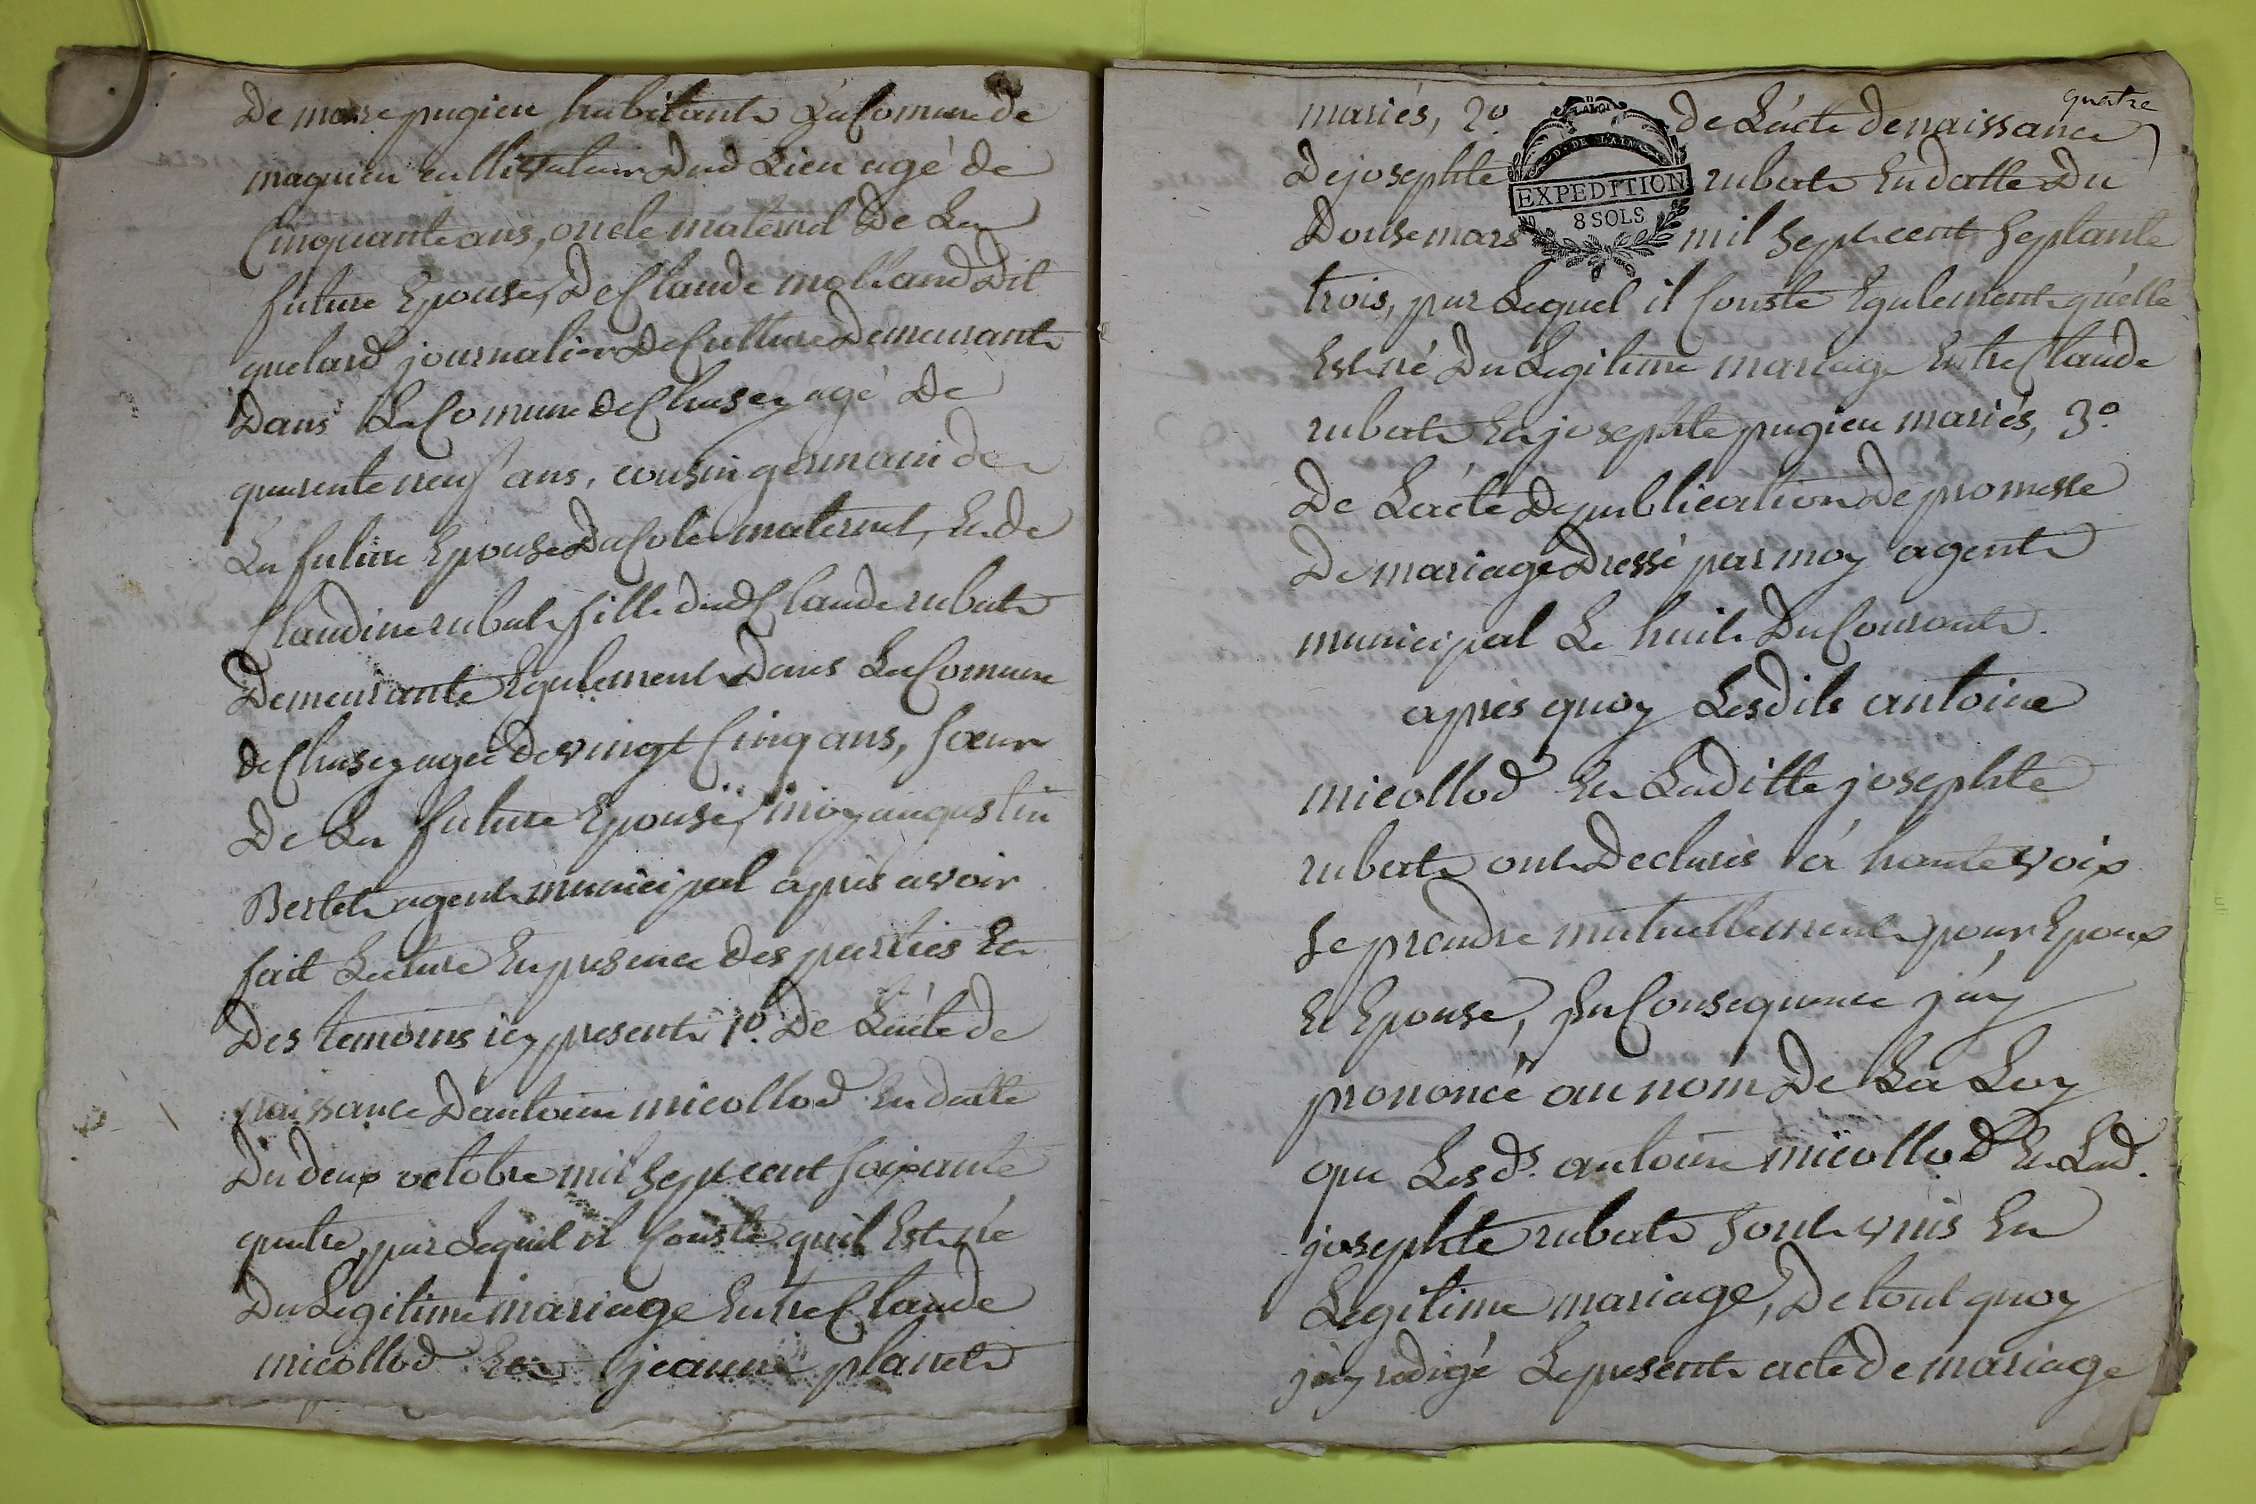 De marc pugieu habitant En Comune de
magnieu cullitvateur Dud Lieu agé de
Cinquante ans, oncle maternel De La
future Epouse, De Claude mollard Dit
quelard journalier De Culture Demeurant
Dans La Comune de Chasey agé De
quarente neuf ans, cousin germain de
La future Epouse Du Coté maternel, Et de
Claudine rubat fille dud Claude rubat
Demeurante Egalement Dans La Comune
de Chasey ageé de vingt Cinq ans, sœur
De La future Epouse, moy augustin
Bertet agent municipal après avoir
fait Lecture En presence des parties Et
Des temoins icy present 1º. De L'acte de
naissance D'antoine micollod En datte
Du deux octobre mil sept cent soixante
quatre, par Lequel il Conste qu'il Est né
Du Legitime mariage Entre Claude
micollod Et jeanne planet
quatre
mariés, 2º. de L'acte de naissance
De josephte rubat En datte Du
Douse mars mil sept cent septante
trois, par Lequel il Conste Egalement qu'elle
Est né Du Legitime mariage Entre Claude
rubat Et josephte pugieu mariés, 3º
De L'acte De publication De promesse
De mariage Dressé par moy agent
municipal Le huit Du Courant.
après quoy Lesdits antoine
micollod Et Laditte josephte
rubat ont Declarés à haute voix
se prendre mutuellement pour Epoux
Et Epouse, En Consequence j'ay
prononcé au nom De La Loy
que Lesds. antoine micollod Et Lad.
josephte rubat sont unis En
Legitime mariage, De tout quoy
j'ay redigé Le present acte de mariage
EXPEDITION
8 SOLS